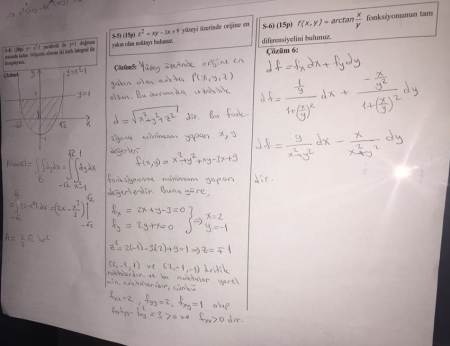 S-4) (20p) y=x²-1 parabolü ile y=1 doğrusu
arasında kalan bölgenin alanını iki katlı integral ile
hesaplayınız.
y=x²-1
y=1
√2
x
= ∫∫ dy dx = ∫ ∫ dy dx
-√2 x²-1
= ∫ (2-x²) dx = (2x - x³/3) |
√2
-√2
S-5) (15p) z² = xy - 3x + 9 yüzeyi üzerinde orijine en
yakın olan noktayı bulunuz.
Çözüm5: Yüzey üzerinde orijine en
yakın olan nokta P(x,y,z)
olsun. Bu durumda uzaklık
d = √x²+y²+z² dir. Bu fonk-
siyonu minimum yapan x, y
değerleri
f(x,y) = x²+y²+xy-3x+9
fonksiyonunu minimum yapan
değerlerdir. Buna göre,
fx = 2x+y-3=0
fy = 2y+x=0
⇒ x=2
y=-1
z² = 2(-1)-3(2)+9=1 ⇒ z=∓1
(2,-1,1) ve (2,-1,-1) kritik
noktalardır ve bu noktalar yerel
min. noktalarıdır, çünkü
fxx=2, fyy=2, fxy=1 olup
fxx fyy - f²xy = 3 > 0 ve fxx > 0 dır.
S-6) (15p) f(x,y) = arctan x/y fonksiyonunun tam
diferensiyelini bulunuz.
Çözüm 6:
df = fx dx + fy dy
df = (1/y)/(1+(x/y)²) dx + (-x/y²)/(1+(x/y)²) dy
df = y/(x²+y²) dx - x/(x²+y²) dy
dir.